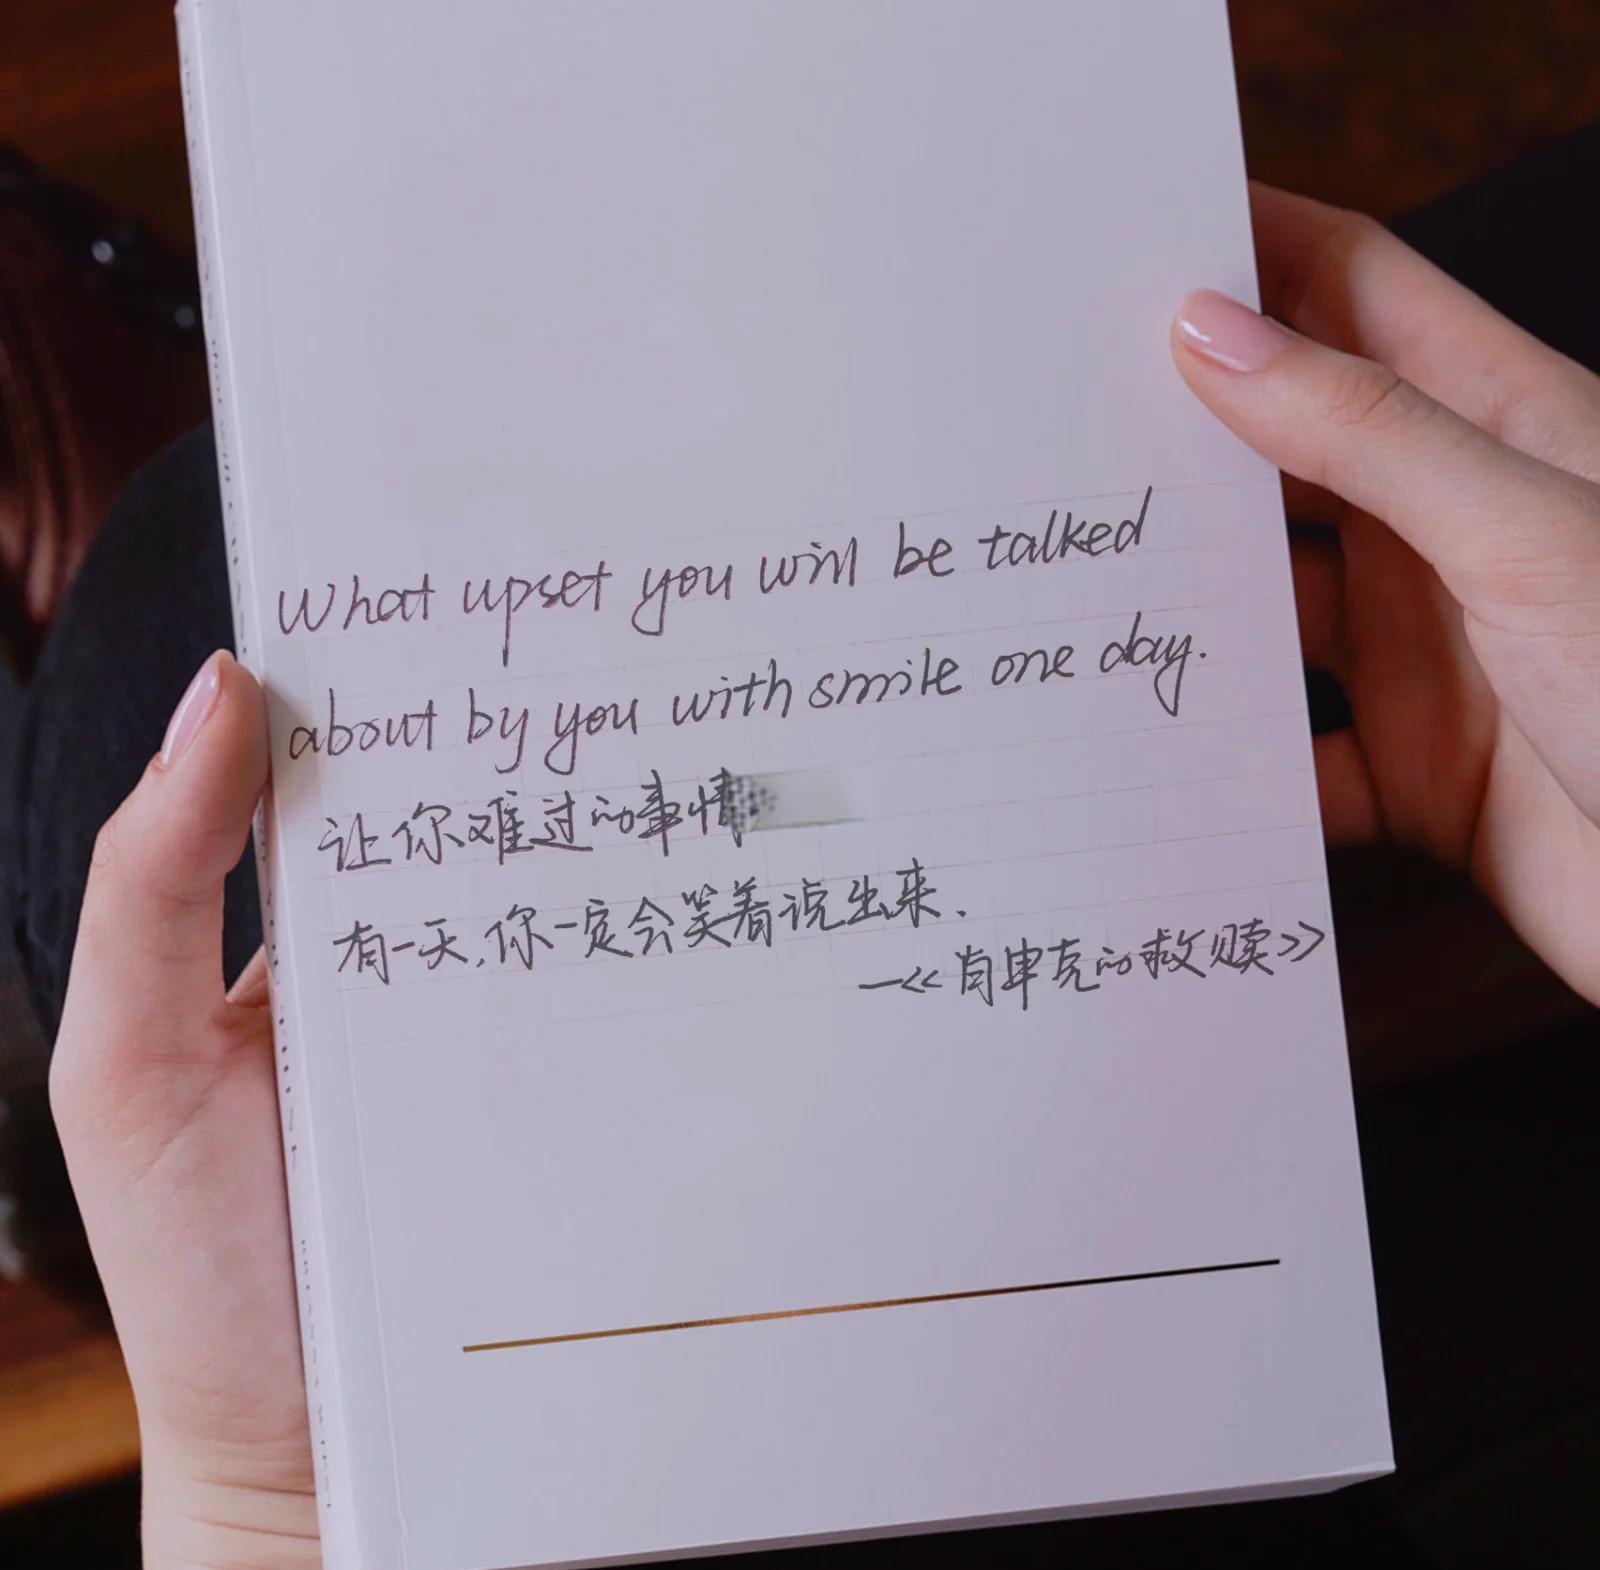 What upset you will be talked
about by you with smile one day.
让你难过的事情
有一天,你一定会笑着说出来.
—《肖申克的救赎》